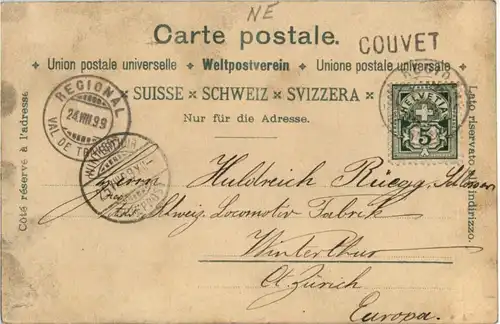 NE
Carte postale.
COUVET
Union postale universelle Weltpostverein Unione postale universale
SUISSE × SCHWEIZ × SVIZZERA ×
Nur für die Adresse.
Côté réservé à l'adresse
Lato riservato all'indirizzo.
REGIONAL
24.VIII.99
VAL DE
WINTERTHUR
HELVETIA
5
Herrn Huldreich Rüegg
Schweiz. Locomotiv Fabrik
Winterthur
Ct. Zürich
Europa.